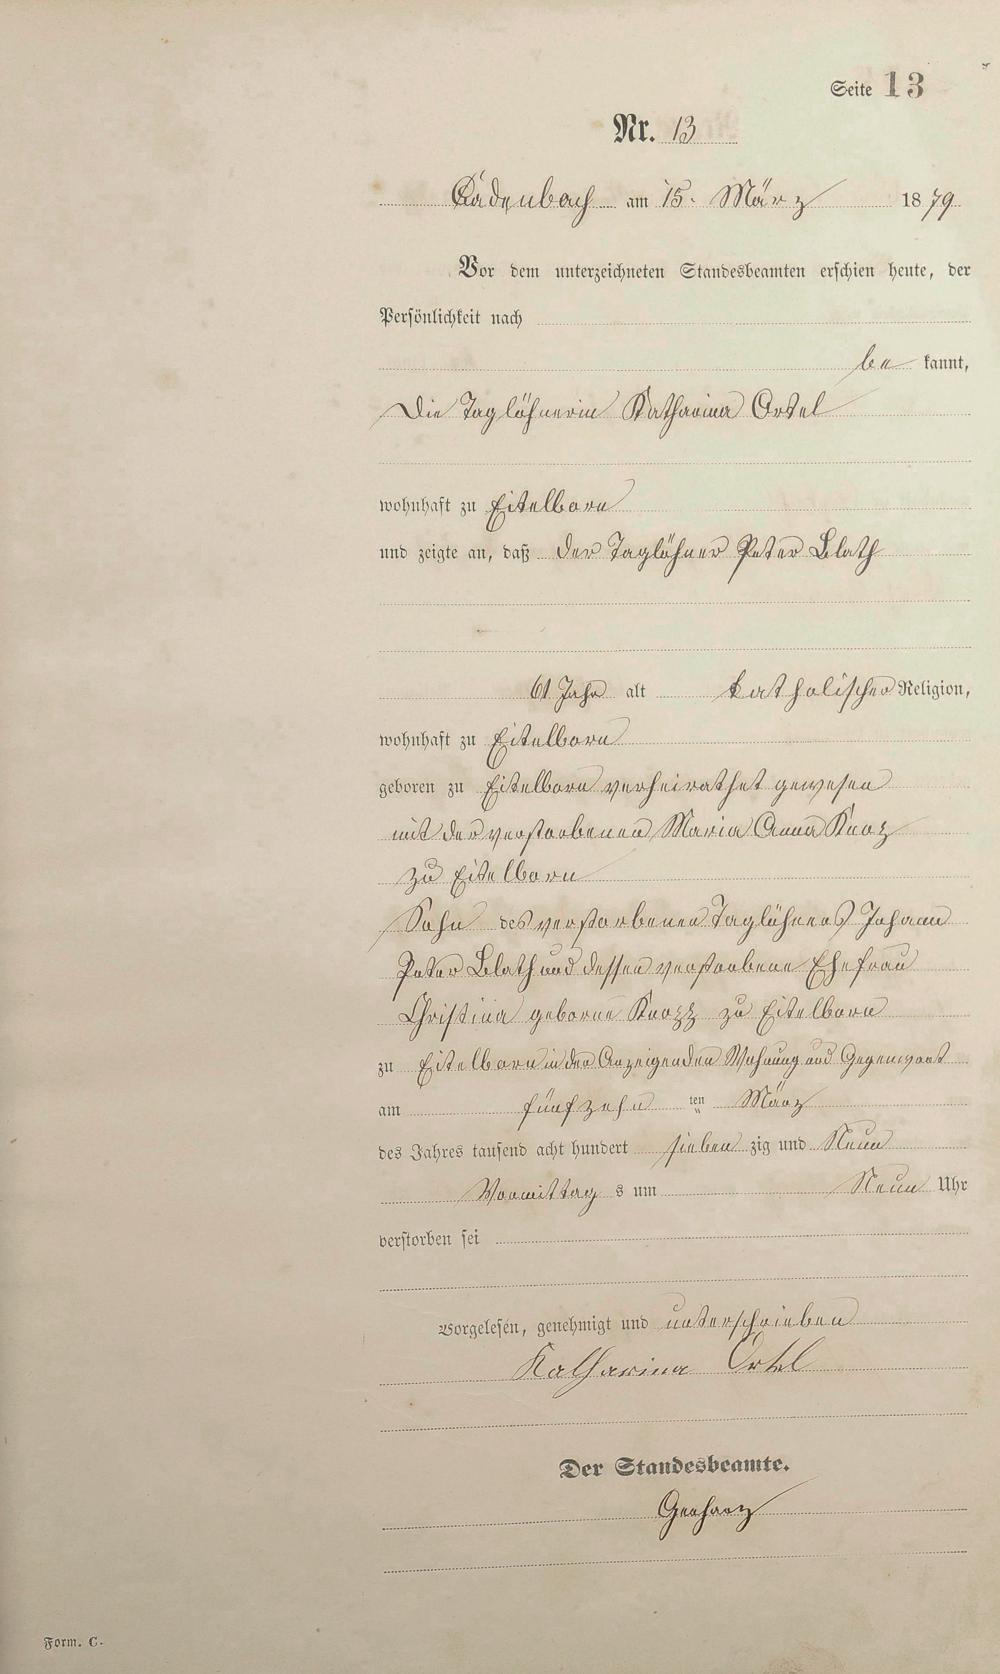 Seite 13
Nr. 13
Cadenbach am 15. März 1879
Vor dem unterzeichneten Standesbeamten erschien heute, der
Persönlichkeit nach
be kannt,
Die Taglöhnerin Katharina Ortel
wohnhaft zu Eitelborn
und zeigte an, daß der Taglöhner Peter Blath
61 Jahr alt katholischer Religion,
wohnhaft zu Eitelborn
geboren zu Eitelborn verheirathet gewesen
mit der verstorbenen Maria Anna
zu Eitelborn
Sohn des verstorbenen Taglöhners Johann
Peter Blath und dessen verstorbene Ehefrau
Christina geborne zu Eitelborn
zu Eitelborn in der Anzeigenden Wohnung und Gegenwart
am fünfzehn ten März
des Jahres tausend acht hundert sieben zig und Neun
Vormittag s um Neun Uhr
verstorben sei
Vorgelesen, genehmigt und unterschrieben
Katharina Ortel
Der Standesbeamte.
Gerharz
Form. C.